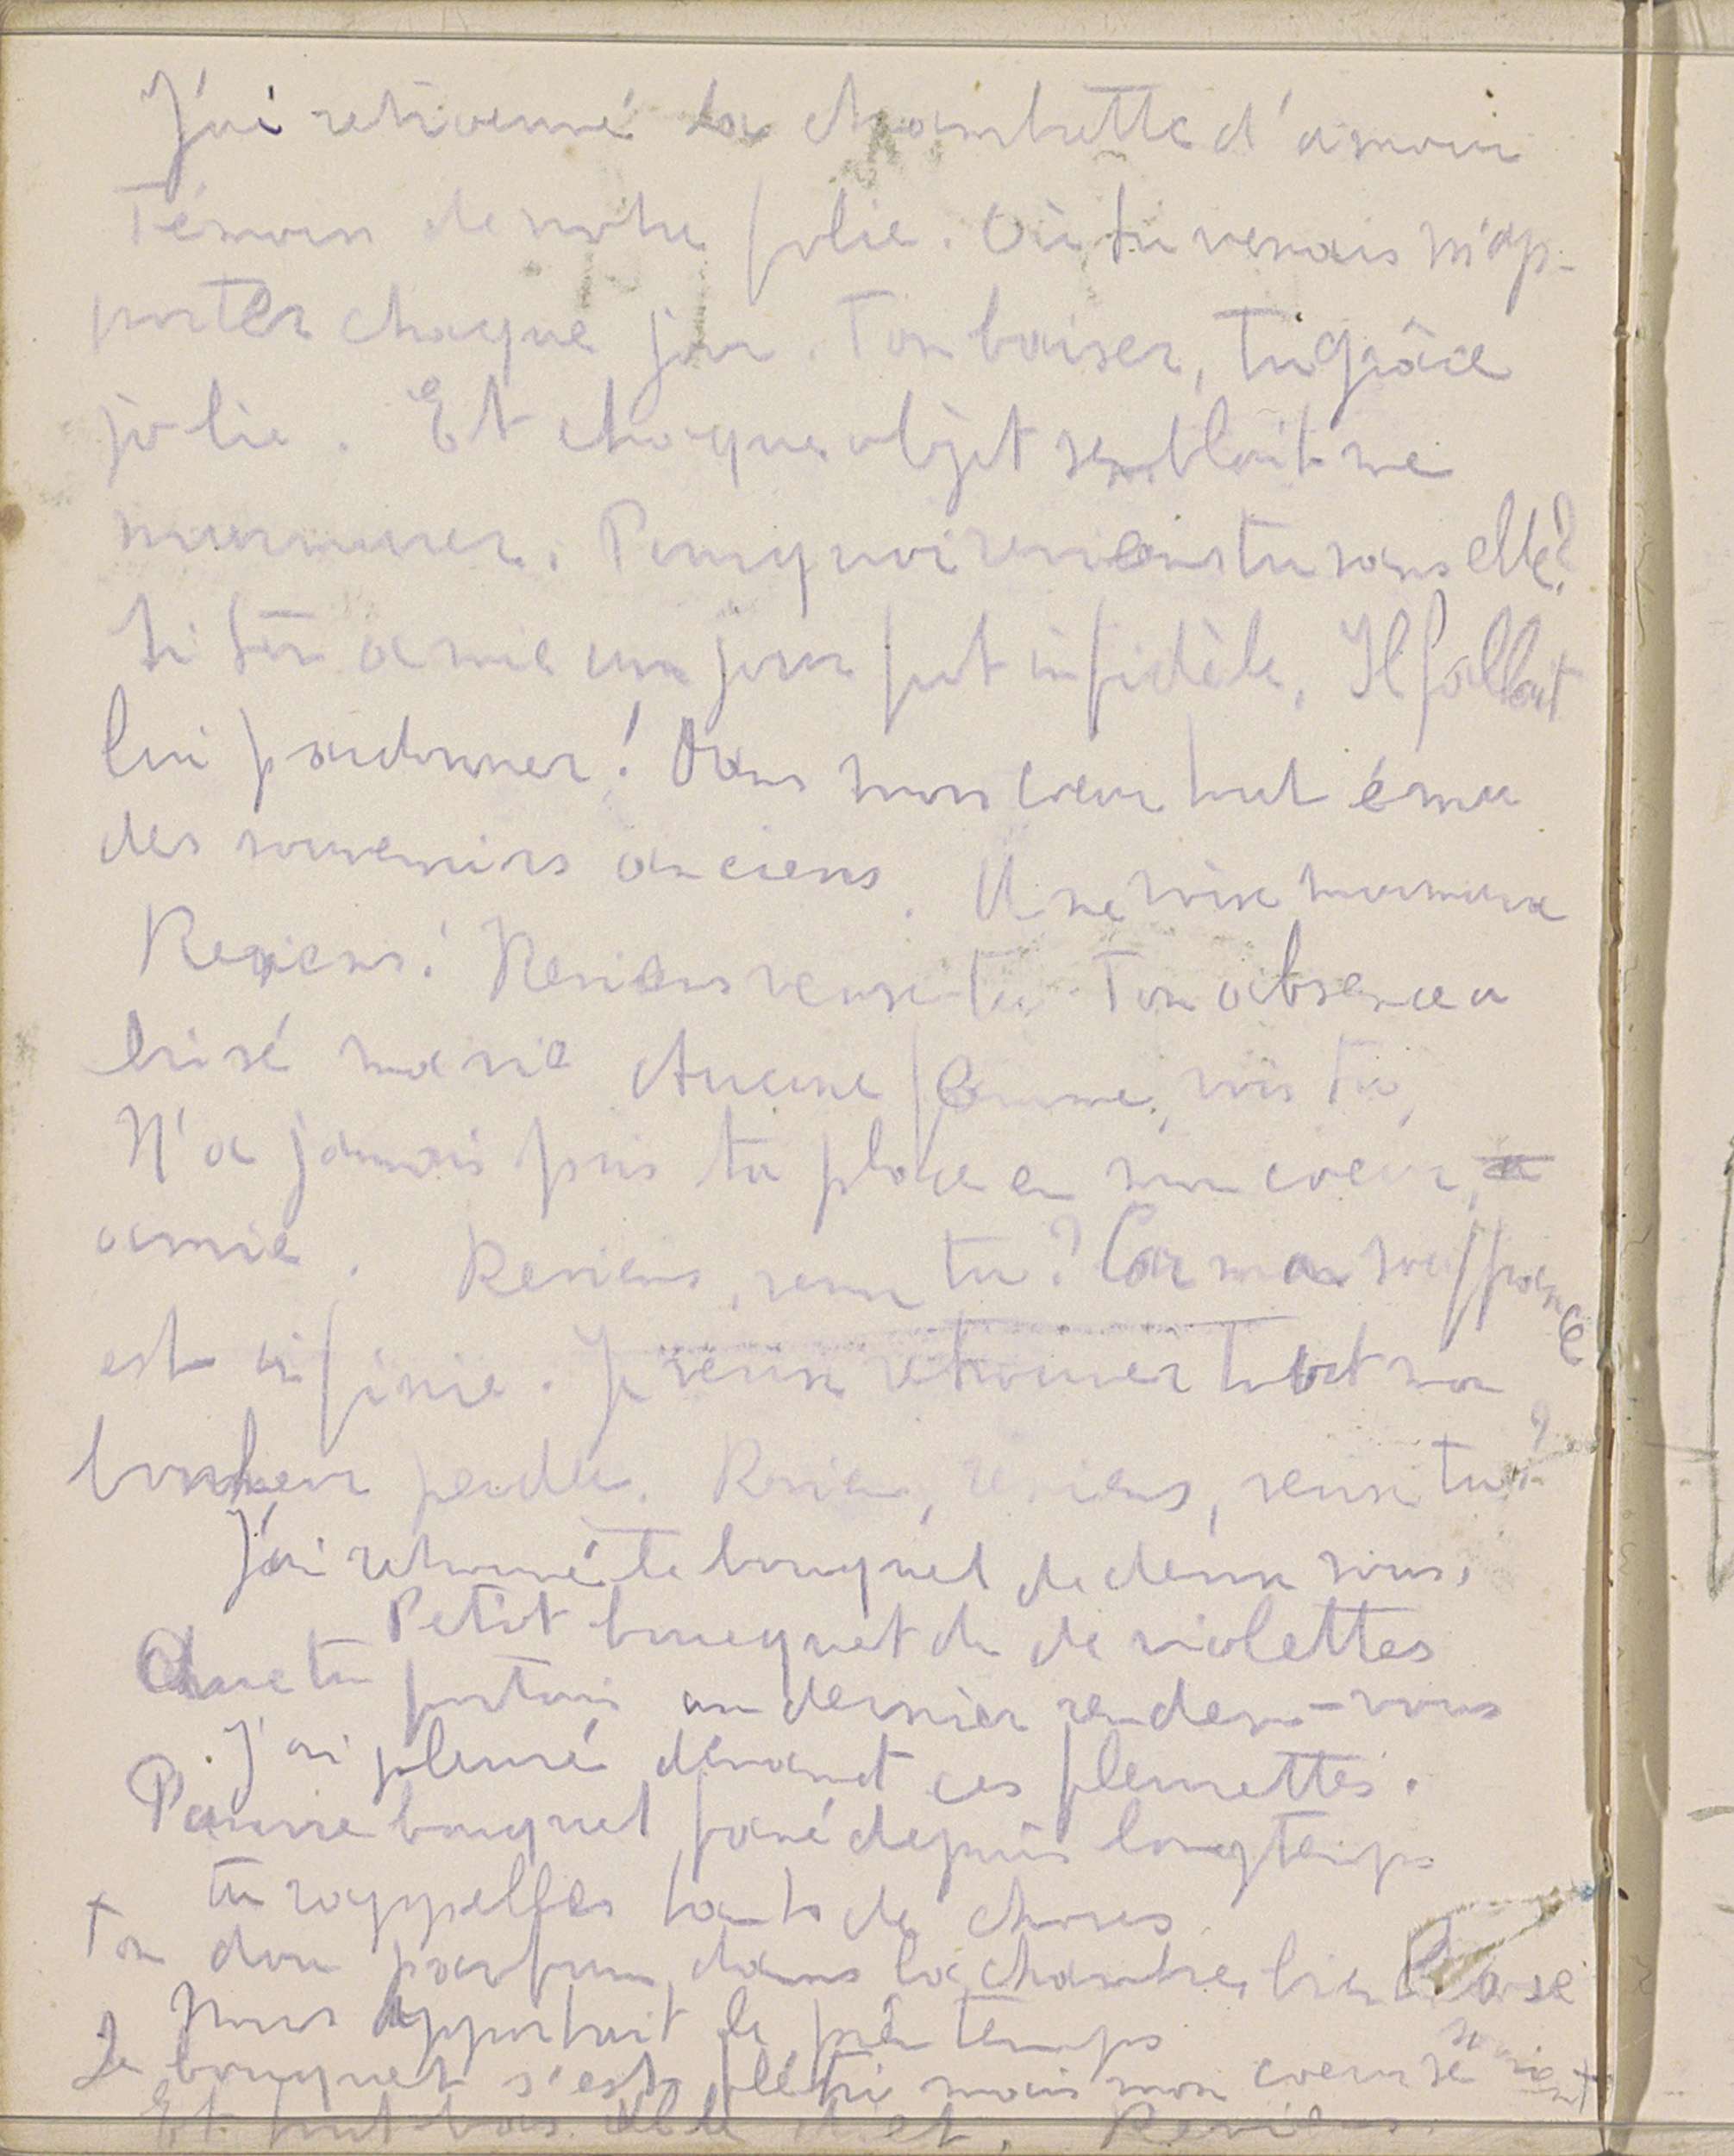 J'ai retrouvé la chambrette d'amour
Témoin de notre folie. Où tu venais m'ap-
porter chaque jour. Ton baiser, ta grâce
jolie. Et chaque objet semblait me
murmurer. Pourquoi reviens tu sans elle?
Si ton amie un jour fut infidèle, Il fallait
lui pardonner! Dans mon coeur tout ému
des souvenirs anciens. Une voix murmure
Reviens! Reviens veux tu Ton absence a
brisé ma vie Aucune femme, vois tu,
N'a jamais pris ta place en mon coeur,
amie. Reviens, veux tu? Car ma souffrance
est infinie. Je veux retrouver tout mon
bonheur perdu. Reviens, reviens, veux tu?
J'ai retrouvé le bouquet de deux sous,
Petit bouquet de de violettes
Que tu portais au dernier rendez-vous
J'ai pleuré devant ces fleurettes.
Pauvre bouquet fané depuis longtemps
tu rappelles tants de choses
Ton doux parfum, dans la chambre bien close
Nous apportait le printemps
Le bouquet s'est flétri mais mon coeur se souvient
Et tout bas elle dit, Reviens.